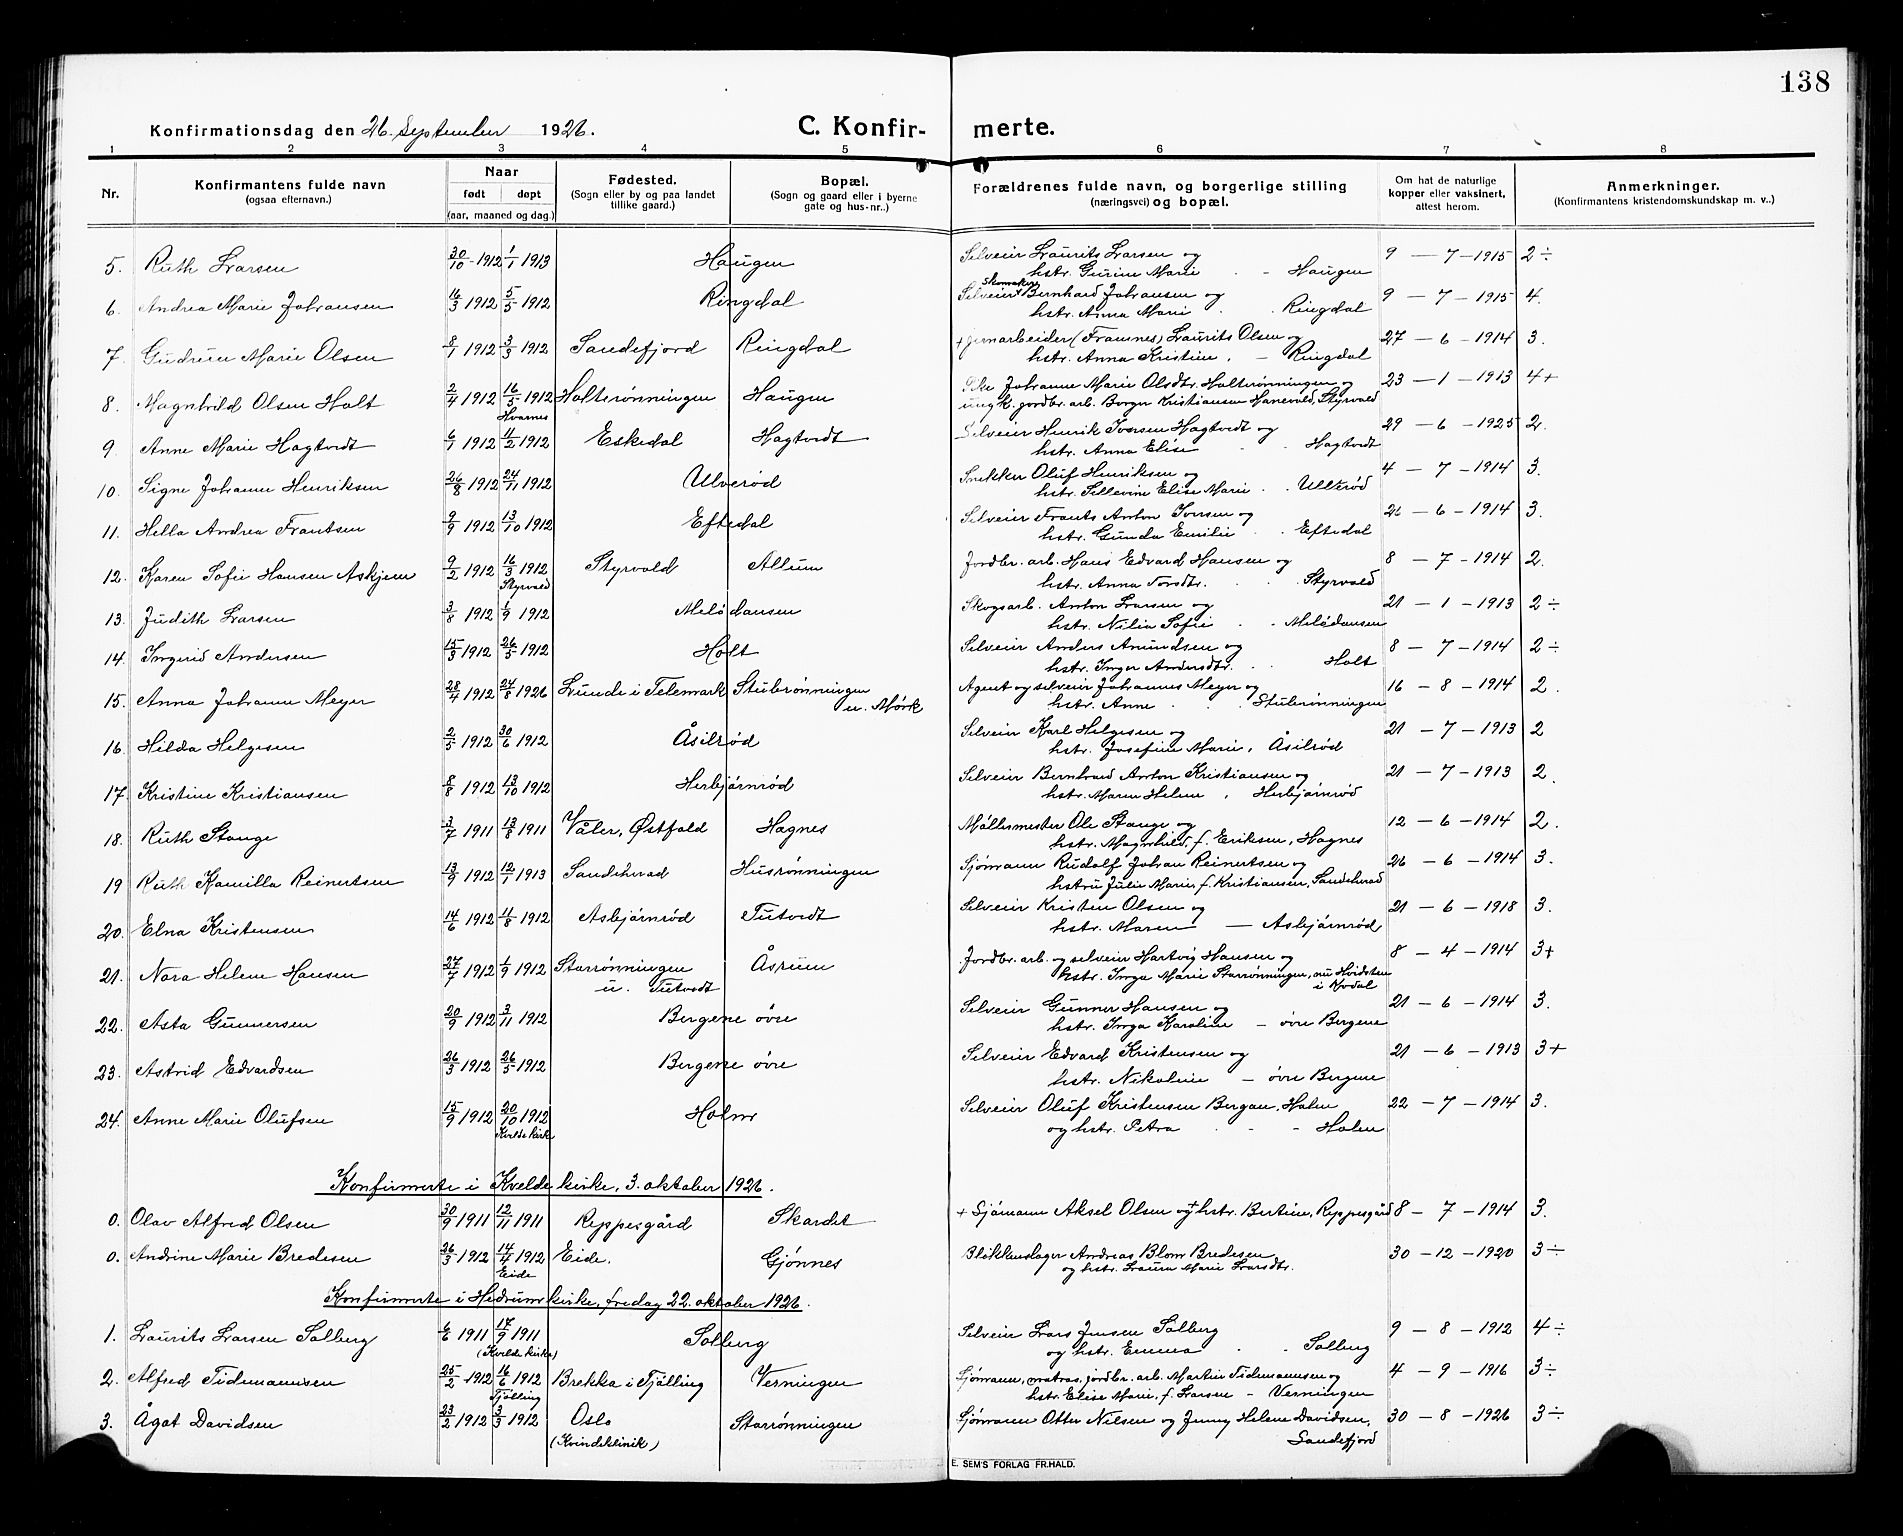 138
Konfirmationsdag den 26. September 1926.
C. Konfir- merte.
1 2 3 4 5 6 7 8
Nr. Konfirmantens fulde navn (ogsaa efternavn.) Naar født døpt (aar, maaned og dag.) Fødested. (Sogn eller by og paa landet tillike gaard.) Bopæl. (Sogn og gaard eller i byerne gate og hus-nr..) Forældrenes fulde navn, og borgerlige stilling (næringsvei) og bopæl. Om hat de naturlige kopper eller vaksinert, attest herom. Anmerkninger. (Konfirmantens kristendomskundskap m. v..)
5. Ruth Larsen 30/10-1912 1/1 1913 Haugen Selveier Laurits Larsen og 9 - 7 - 1915 2÷
hstr. Gurine Marie - Haugen
6. Andrea Marie Johansen 16/3 1912 5/5 1912 Ringdal Selveier Skomaker Bernhard Johansen og 9 - 7 - 1915 4.
hstr. Anna Marie Ringdal
7. Gudrun Marie Olsen 8/1 1912 3/3 1912 Sandefjord Ringdal + jernarbeider (Framnes) Laurits Olsen og 27 - 6 - 1914 3.
hstr. Anna Kristine, - Ringdal
8. Magnhild Olsen Holt 2/4 1912 16/5 1912 Holtsrønningen Haugen Pike Johanne Marie Olsdtr. Holtsrønningen og 23 - 1 - 1913 4+
Hvarnes ungk. jordbr. arb. Borger Kristiansen Hanevold, Styrvold
9. Anne Marie Hagtvedt 6/1 1912 11/2 1912 Eskedal Hagtvedt Selveier Henrik Iversen Hagtvedt og 29 - 6 - 1925 2.
hstr. Anna Elise Hagtvedt
10. Signe Johanne Henriksen 26/8 1912 24/11 1912 Ulverød Snekker Oluf Henriksen og 4 - 7 - 1914 3.
hstr. Sellevine Elise Marie Ulverød
11. Hella Andrea Frantsen 9/9 1912 13/10 1912 Eftedal Selveier Frants Anton Iversen og 21 - 6 - 1914 3.
hstr. Gunda Emilie Eftedal
12. Karen Sofie Hansen Askjem 9/2 1912 16/3 1912 Styrvold Allum Jordbr. arb. Hans Edvard Hansen og 8 - 7 - 1914 2.
Styrvold hstr. Anna Torsdtr. Styrvold
13. Judith Larsen 3/8 1912 1/9 1912 Melødansen Skogsarb. Anton Larsen og 21 - 1 - 1913 2÷
hstr. Nilia Sofie - Melødansen
14. Ingerid Andersen 15/3 1912 26/5 1912 Holt Selveier Anders Amundsen og 8 - 7 - 1914 2÷
hstr. Inger Andersdtr. Holt
15. Anna Johanne Meyer 28/4 1912 24/8 1926 Lunde i Telemark Stubrønningen Agent og selveier Johannes Meyer og 16 - 8 - 1914 2.
u. Mørk hstr. Anne Stubrønningen
16. Hilda Helgesen 2/5 1912 30/6 1912 Åsilrød Selveier Karl Helgesen og 21 - 7 - 1913 2
hstr. Josefine Marie, Åsilrød
17. Kristine Kristiansen 8/8 1912 13/10 1912 Herbjørnrød Selveier Bernhard Anton Kristiansen og 21 - 7 - 1913 2.
hstr. Maren Helene, Herbjørnrød
18. Ruth Stange 3/7 1911 13/8 1911 Våler, Østfold Hagnes Møllermester Ole Stange og 12 - 6 - 1914 2.
hstr. Magnhild, f. Eriksen, Hagnes
19 Ruth Kamilla Reinertsen 13/9 1912 12/1 1913 Sandeherad Husrønningen Sjømann Rudolf Johan Reinertsen og 26 - 6 - 1914 3.
hstru Julie Marie, f. Kristiansen, Sandeherad
20. Elna Kristensen 14/6 1912 11/8 1912 Asbjørnrød Tutvedt Selveier Kristen Olsen og 21 - 6 - 1918 3.
hstr. Maren - Asbjørnrød
21. Nora Helene Hansen 27/7 1912 1/9 1912 Starrønningen Åsrum Jordbr. arb. og selveier Hartvig Hansen og 8 - 4 - 1914 3+
u. Tutvedt hstr. Inga Marie Starrønningen, nu Hvidsten
i Kodal
22. Asta Gunnersen 20/9 1912 3/11 1912 Bergene øvre Selveier Gunner Hansen og 21 - 6 - 1914 3.
hstr. Inga Karoline - øvre Bergene
23. Astrid Edvardsen 26/3 1912 26/5 1912 Bergene øvre Selveier Edvard Kristensen og 21 - 6 - 1913 3+
hstr. Nikoline - øvre Bergene
24. Anne Marie Olufsen 15/9 1912 20/10 1912 Holm Selveier Oluf Kristensen Bergan, Holm 22 - 7 - 1914 3.
Kvelde kirke og hstr. Petra - - Holm
Konfirmerte i Kvelde kirke, 3. oktober 1926.
0. Olav Alfred Olsen 30/9 1911 12/11 1911 Reppesgård Skardet + Sjømann Aksel Olsen og + hstr. Bertine, Reppesgård 8 - 7 - 1914 3.
0. Andrine Marie Bredesen 26/3 1912 14/4 1912 Eide. Gjønnes Blikkenslager Andreas Blom Bredesen 30 - 12 - 1920 3÷
Eide og hstr. Laura Marie Larsdtr.
Konfirmerte i Hedrum kirke, fredag 22. oktober 1926.
1. Laurits Larsen Solberg 6/6 1911 17/9 1911 Solberg Selveier Lars Jensen Solberg 9 - 8 - 1912 4÷
(Kvelde kirke) og hstr. Emma - Solberg
2. Alfred Tidemannsen 25/2 1912 16/6 1912 Brekka i Tjølling Verningen Sjømann, matros, jordbr. arb. Martin Tidemannsen og 4 - 9 - 1916 3÷
Tjølling hstr. Elise Marie, f. Larsen - Verningen
3. Ågot Davidsen 23/2 1912 3/3 1912 Oslo Starrønningen Sjømann Otter Nilsen og Jenny Helene Davidsen, 30 - 8 - 1926 3÷
(Kvindeklinik) Sandefjord
E. SEM'S FORLAG FR.HALD.